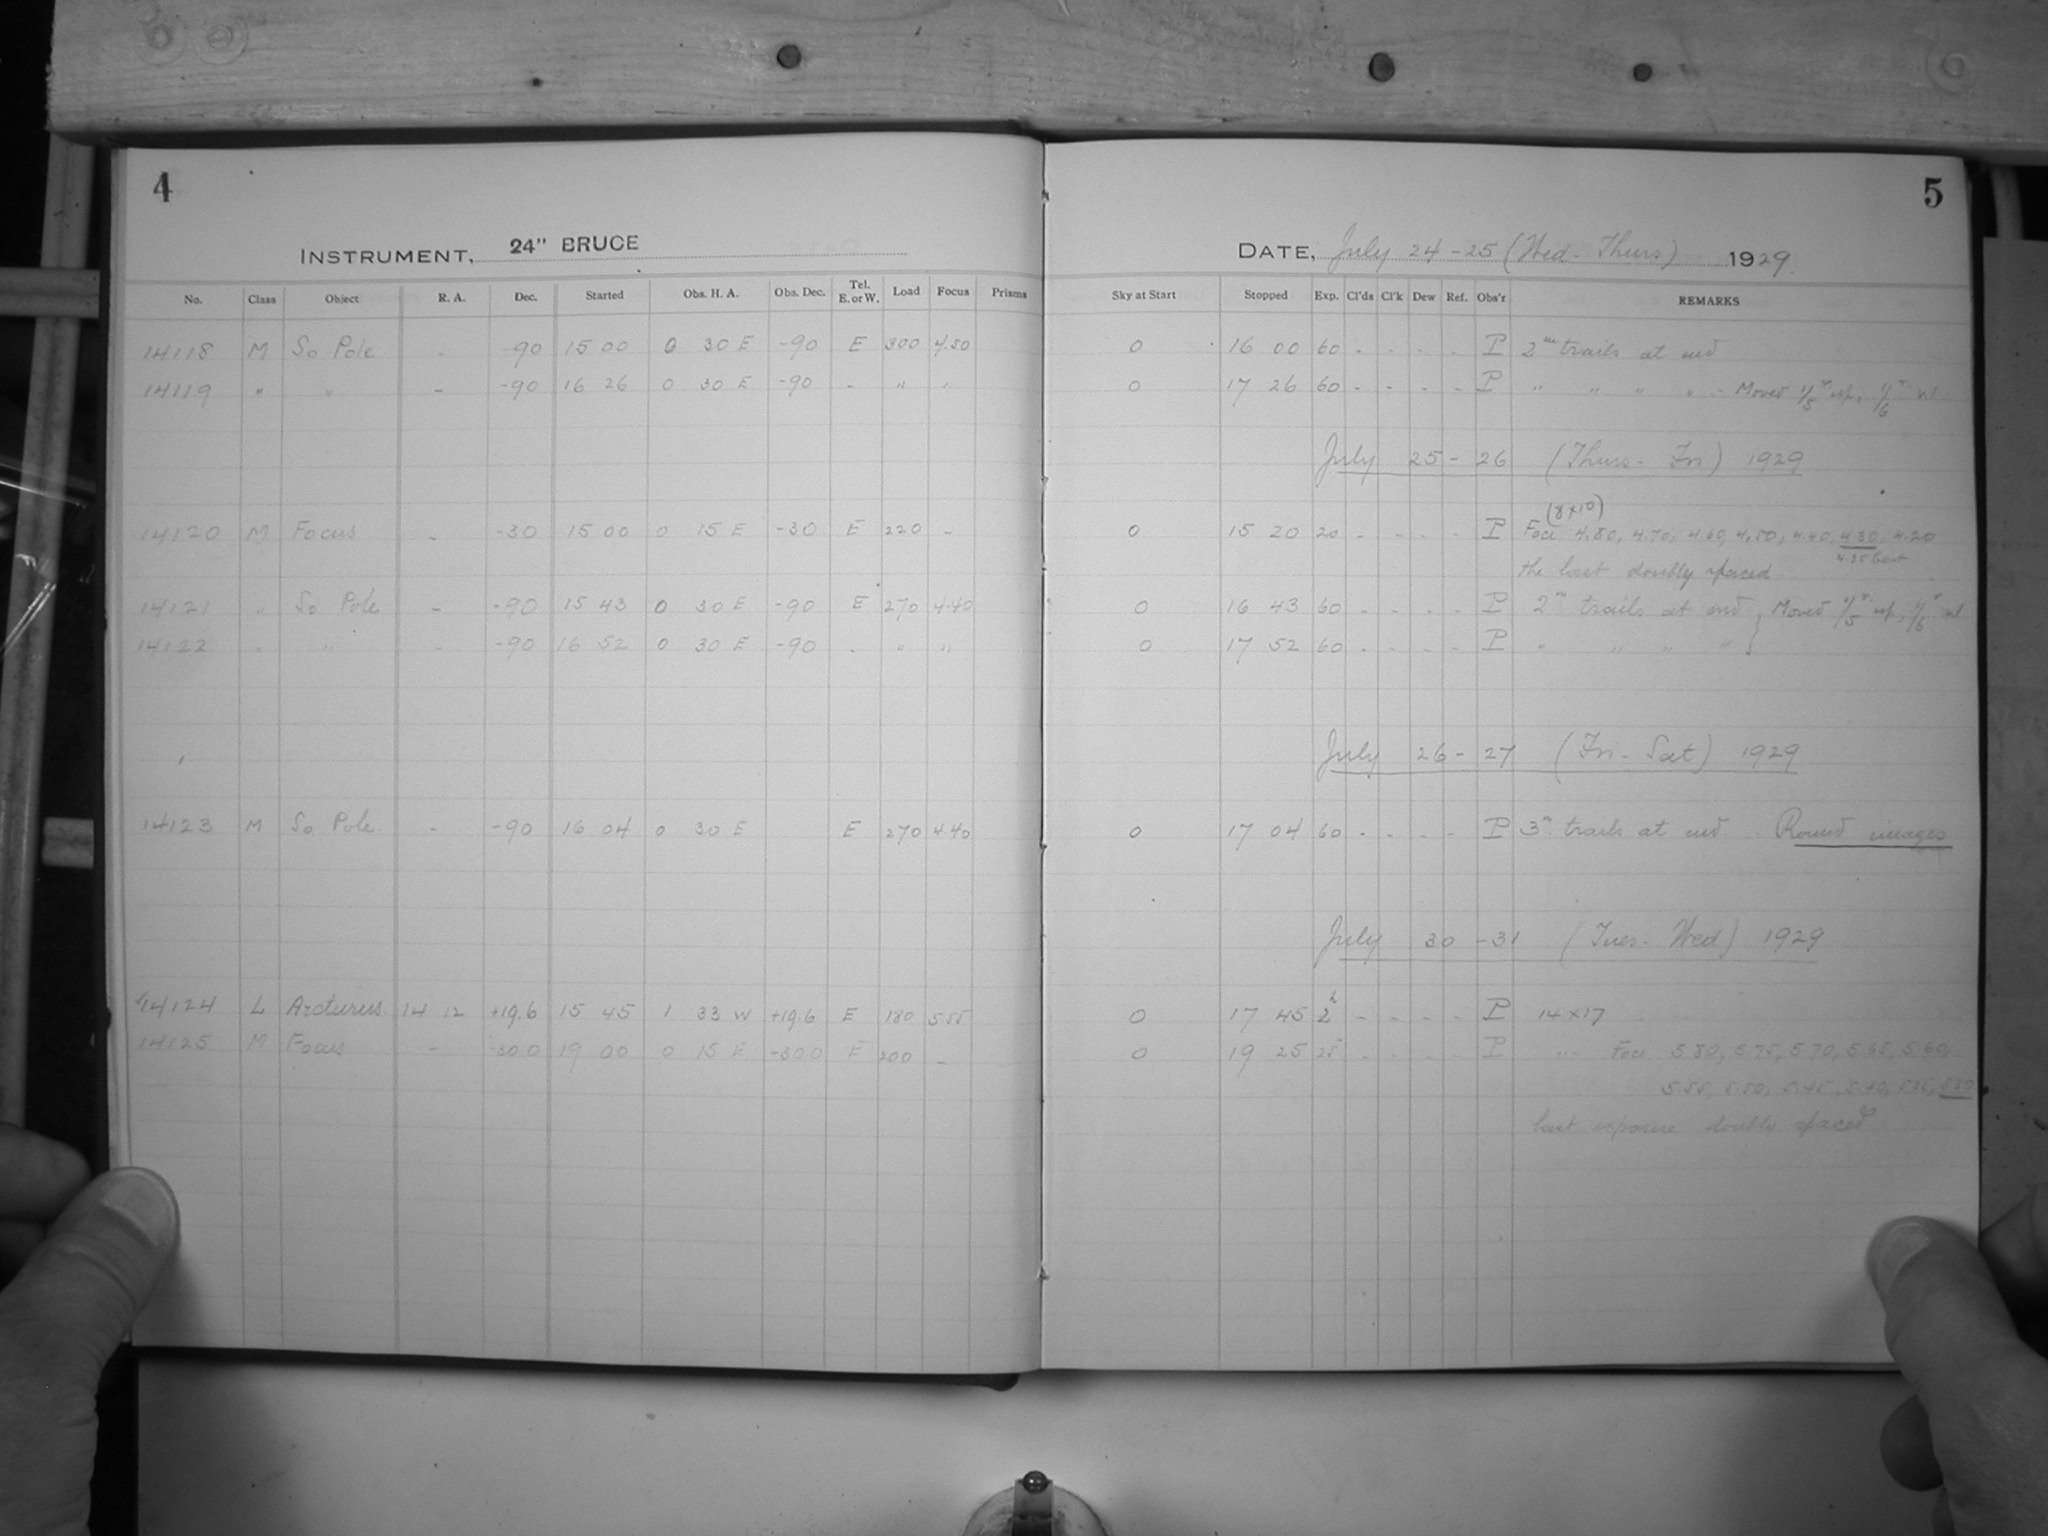 4
5
INSTRUMENT, 24" BRUCE
DATE, July 24-25 (Wed-Thurs) 1929
No. Class Object R. A. Dec. Started Obs. H. A. Obs. Dec. Tel. E. or W. Load Focus Prisms Sky at Start Stopped Exp. Cl'ds Cl'k Dew Ref. Obs'r REMARKS
14118 M So Pole - -90 15 00 0 30 E -90 E 300 4.50 0 16 00 60 - - - - P 2m trails at end
14119 " " - -90 16 26 0 30 E -90 - " " 0 17 26 60 - - - - P " " " " - Moved 1/5 r up, 1/6 r
July 25-26 (Thurs-Fri) 1929
(8x10)
14120 M Focus - -30 15 00 0 15 E -30 E 220 - 0 15 20 20 - - - - P Foci 4.80, 4.70, 4.60, 4.50, 4.40, 4.30, 4.20
4.35 best
the last doubly spaced
14121 " So Pole - -90 15 43 0 30 E -90 E 270 4.40 0 16 43 60 - - - - P 2m trails at end } Moved 1/5 r up, 1/5 r
14122 " " - -90 16 52 0 30 E -90 - " " 0 17 52 60 - - - - P " " " "
July 26-27 (Fri-Sat) 1929
14123 M So Pole - -90 16 04 0 30 E E 270 4.40 0 17 04 60 - - - - P 3m trails at end Round images
July 30-31 (Tues-Wed) 1929
14124 L Arcturus 14 12 +19.6 15 45 1 33 W +19.6 E 180 5.55 0 17 45 2h - - - - P 14x17
14125 M Focus - -30 0 19 00 0 15 E -30 0 E 200 - 0 19 25 25 - - - - P " - Foci 5.80, 5.75, 5.70, 5.65, 5.60,
5.55, 5.50, 5.45, 5.40, 5.35, 5.30
last exposure doubly spaced